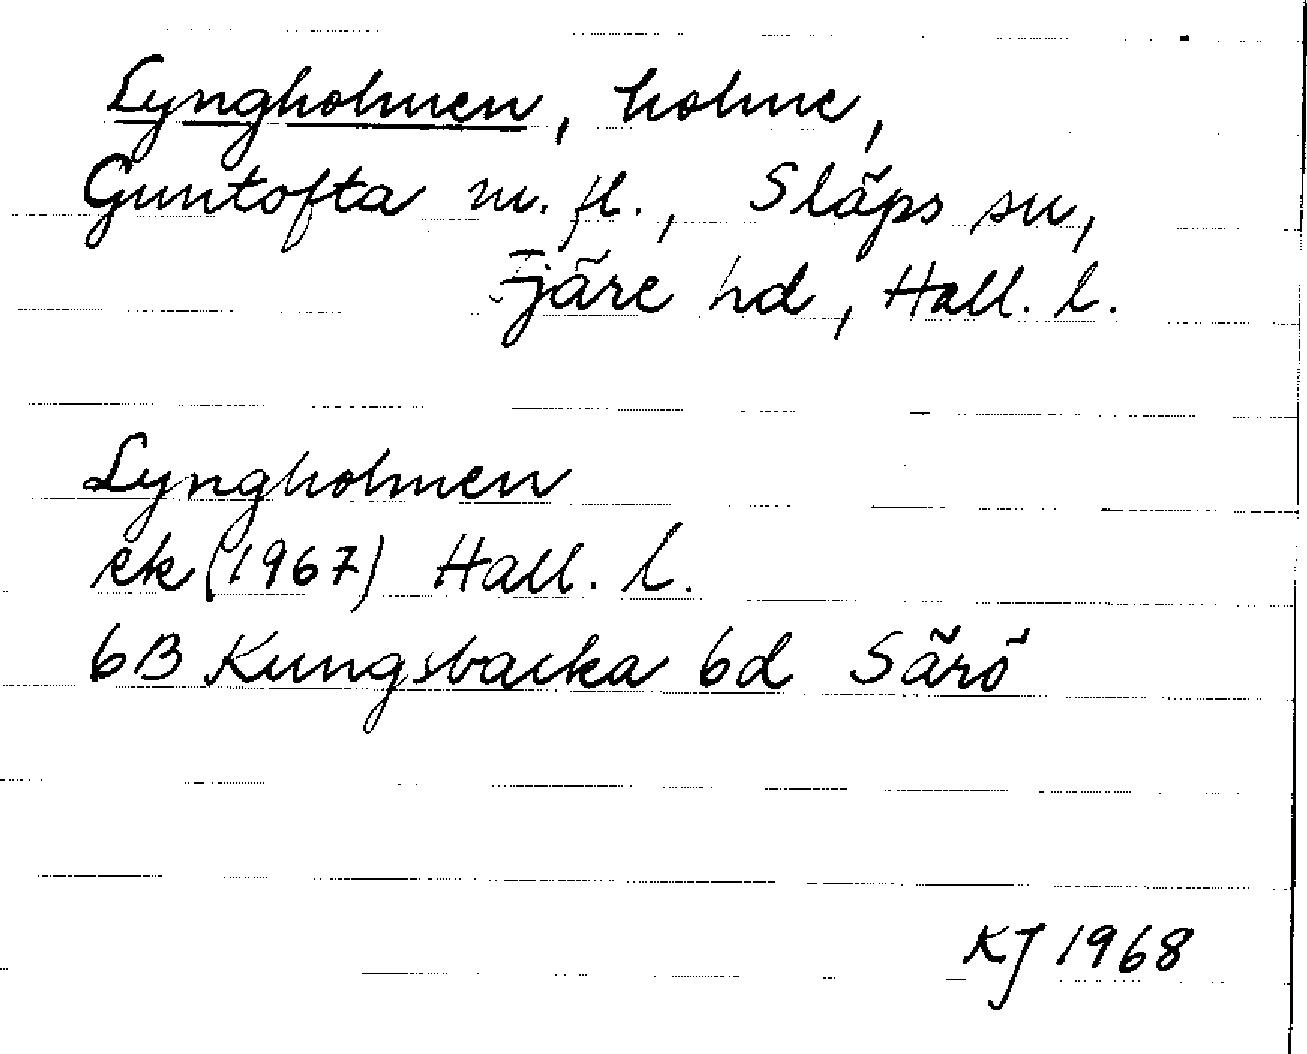 Lyngholmen, holme,
Guntofta m. fl., Släps sn,
Fjäre hd, Hall. l.
Lyngholmen
ek (1967) Hall. l.
6B Kungsbacka 6d Särö
KJ 1968